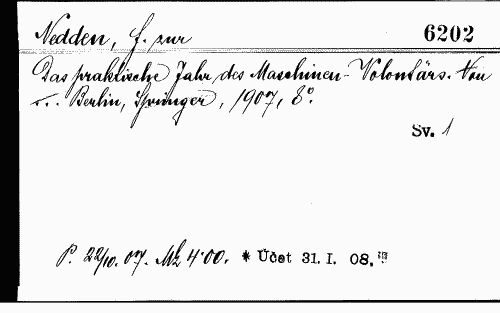 Nedden, F. zur
6202
Das praktische Jahr des Maschinen-Volontärs. Von
... Berlin, Springer, 1907, 8°.
Sv. 1
P. 22/10. 07. Mk 4·00. * Účet 31. I. 08.